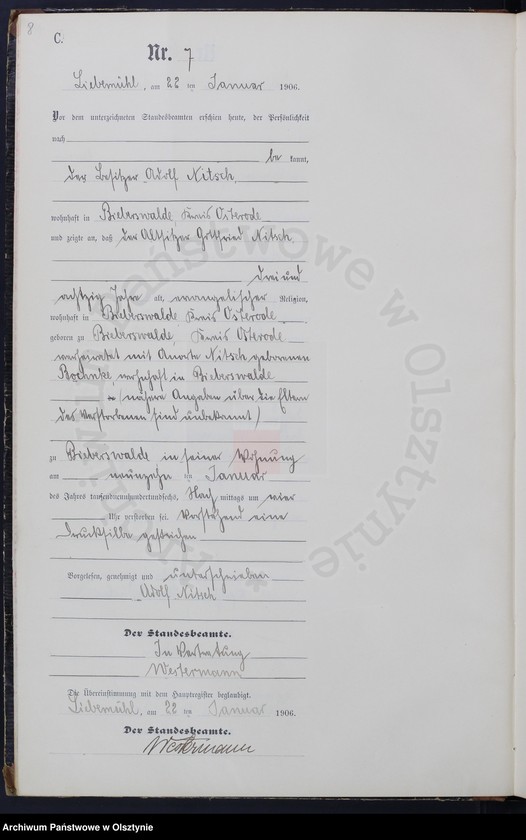 8
C.
Nr. 7
Liebemühl, am 22 ten Januar 1906.
Vor dem unterzeichneten Standesbeamten erschien heute, der Persönlichkeit
nach
be kannt,
der Besitzer Adolf Nitsch,
wohnhaft in Bieberswalde, Kreis Osterode
und zeigte an, daß der Altsitzer Gottfried Nitsch
drei und
achtzig Jahre alt, evangelischer Religion,
wohnhaft in Bieberswalde Kreis Osterode
geboren zu Bieberswalde, Kreis Osterode
verheiratet mit Anorte Nitsch geborenen
Boehnke, wohnhaft in Bieberswalde
(nähere Angaben über die Eltern
des Verstorbenen sind unbekannt)
zu Bieberswalde in seiner Wohnung
am neunzehn ten Januar
des Jahres tausendneunhundertundsechs, Nach mittags um vier
Uhr verstorben sei. Vorstehend eine
Drucksilbe gestrichen
Vorgelesen, genehmigt und unterschrieben
Adolf Nitsch
Der Standesbeamte.
In Vertretung
Westermann
Die Übereinstimmung mit dem Hauptregister beglaubigt.
Liebemühl, am 22 ten Januar 1906.
Der Standesbeamte.
Westermann
Archiwum Państwowe w Olsztynie